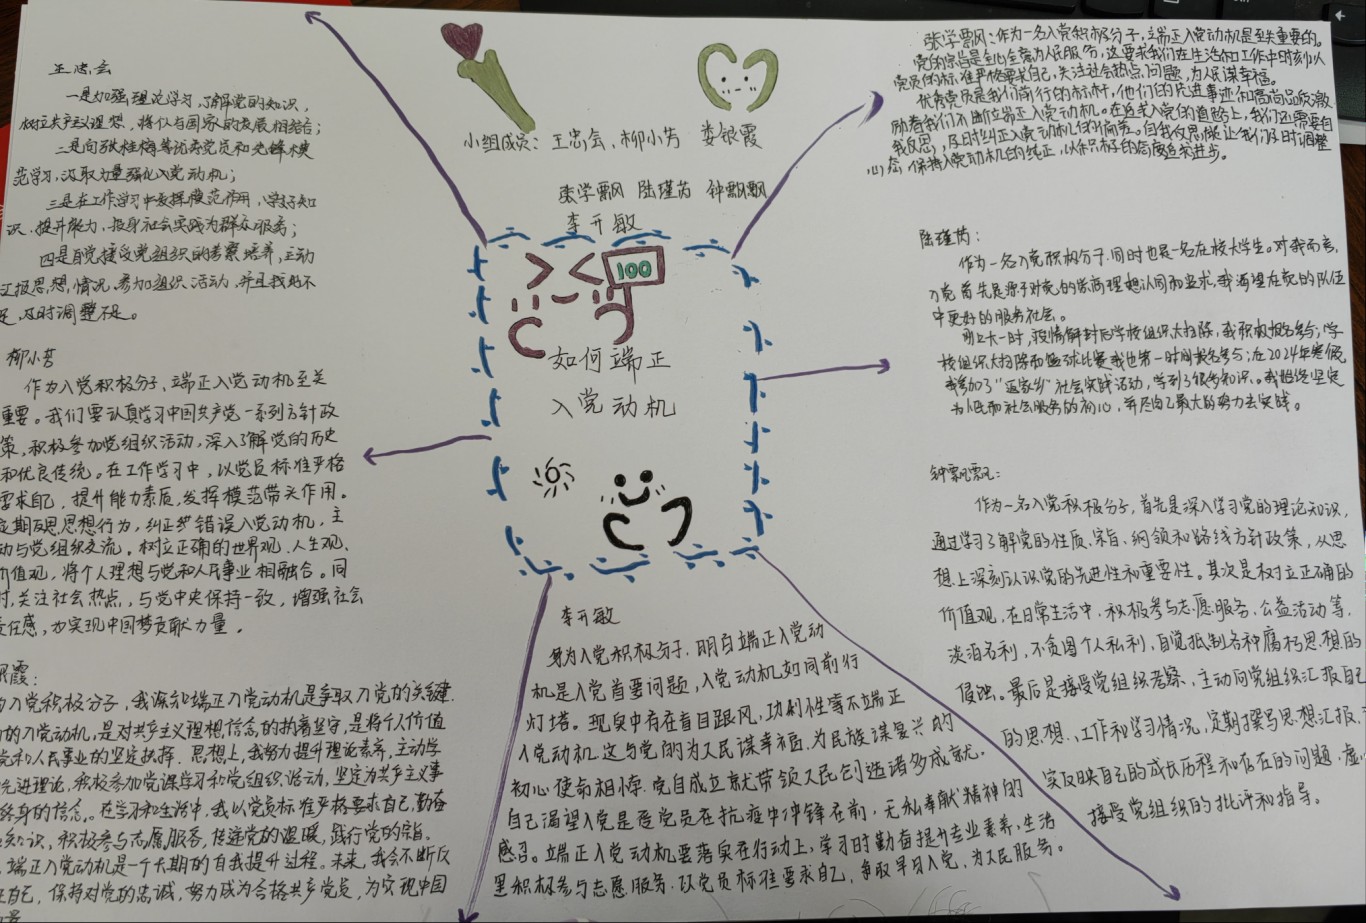 小组成员：王忠会、柳小芳 娄银霞
张学飘 陆瑾芮 钟飘飘
李开敏
100
如何端正
入党动机
王忠会
一是加强理论学习，了解党的知识，
树立共产主义理想，将个人与国家的发展相结合；
二是向张桂梅等优秀党员和先锋模
范学习，汲取力量强化入党动机；
三是在工作学习中发挥模范作用，学好知
识、提升能力，投身社会实践为群众服务；
四是自觉接受党组织的考察培养，主动
汇报思想、情况、参加组织活动，并且找出不
足，及时调整不足。
柳小芳
作为入党积极分子，端正入党动机至关
重要。我们要认真学习中国共产党一系列方针政
策，积极参加党组织活动，深入了解党的历史
和优良传统。在工作学习中，以党员标准严格
要求自己，提升能力素质，发挥模范带头作用。
定期反思思想行为，纠正错误入党动机，主
动与党组织交流。树立正确的世界观、人生观、
价值观，将个人理想与党和人民事业相融合。同
时，关注社会热点，与党中央保持一致，增强社会
责任感，为实现中国梦贡献力量。
银霞：
为入党积极分子，我深知端正入党动机是争取入党的关键。
的入党动机，是对共产主义理想信念的执着坚守，是将个人价值
党和人民事业的坚定抉择。思想上，我努力提升理论素养，主动学
先进理论，积极参加党课学习和党组织活动，坚定为共产主义事
终身的信念。在学习和生活中，我以党员标准严格要求自己，勤奋
知识，积极参与志愿服务，传递党的温暖，践行党的宗旨。
端正入党动机是一个长期的自我提升过程。未来，我会不断反
自己，保持对党的忠诚，努力成为合格共产党员，为实现中国
李开敏
身为入党积极分子，明白端正入党动
机是入党首要问题，入党动机如同前行
灯塔。现实中存在盲目跟风，功利性等不端正
入党动机，这与党的为人民谋幸福，为民族谋复兴的
初心使命相悖。党自成立就带领人民创造诸多成就。
自己渴望入党是受党员在抗疫中冲锋在前，无私奉献精神的
感召。端正入党动机要落实在行动上，学习时勤奋提升专业素养，生活
里积极参与志愿服务，以党员标准要求自己，争取早日入党，为人民服务。
张学飘：作为一名入党积极分子，端正入党动机是至关重要的。
党的宗旨是全心全意为人民服务，这要求我们在生活和工作中时刻以
党员的标准严格要求自己，关注社会热点问题，为人民谋幸福。
优秀党员是我们前行的标杆，他们的先进事迹和高尚品质激
励着我们不断端正入党动机。在追求入党的道路上，我们还需要自
我反思，及时纠正入党动机的偏差。自我反思能让我们及时调整
心态，保持入党动机的纯正，以积极的态度追求进步。
陆瑾芮：
作为一名入党积极分子，同时也是一名在校大学生。对我而言，
入党首先是源于对党的崇高理想认同和追求，我渴望在党的队伍
中更好的服务社会。
刚上大一时，疫情解封后学校组织大扫除，我积极报名参与；学
校组织大扫除和篮球比赛我也第一时间报名参与；在2024年寒假
我参加了“返家乡”社会实践活动，学到了很多知识。我始终坚定
为人民和社会服务的初心，并尽自己最大的努力去实践。
钟飘飘：
作为一名入党积极分子，首先是深入学习党的理论知识，
通过学习了解党的性质、宗旨、纲领和路线方针政策，从思
想上深刻认识党的先进性和重要性。其次是树立正确的
价值观，在日常生活中，积极参与志愿服务、公益活动等，
淡泊名利，不贪图个人私利，自觉抵制各种腐朽思想的
侵蚀。最后是接受党组织考察，主动向党组织汇报自己
的思想、工作和学习情况，定期撰写思想汇报，
实反映自己的成长历程和存在的问题，虚心
接受党组织的批评和指导。